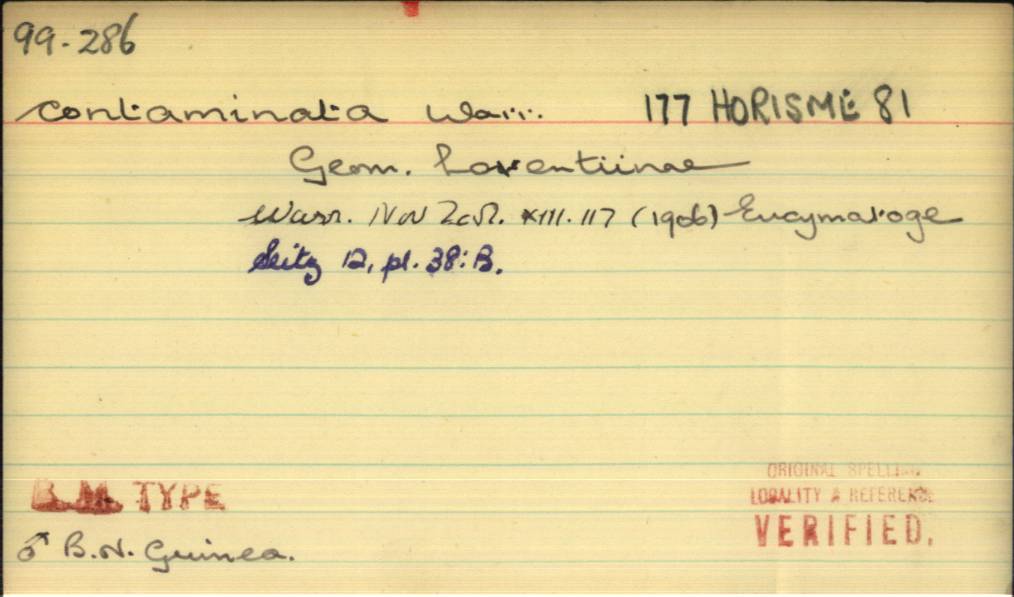 99-286
contaminata Warr. 177 HORISME 81
Geom. Larentiinae
Warr. Nov Zool. XIII. 117 (1906) Eucymatoge
Seitz 12, pl. 38: B.
ORIGINAL SPELLING
B.M. TYPE LOCALITY & REFERENCE
VERIFIED.
♂ B.N. Guinea.